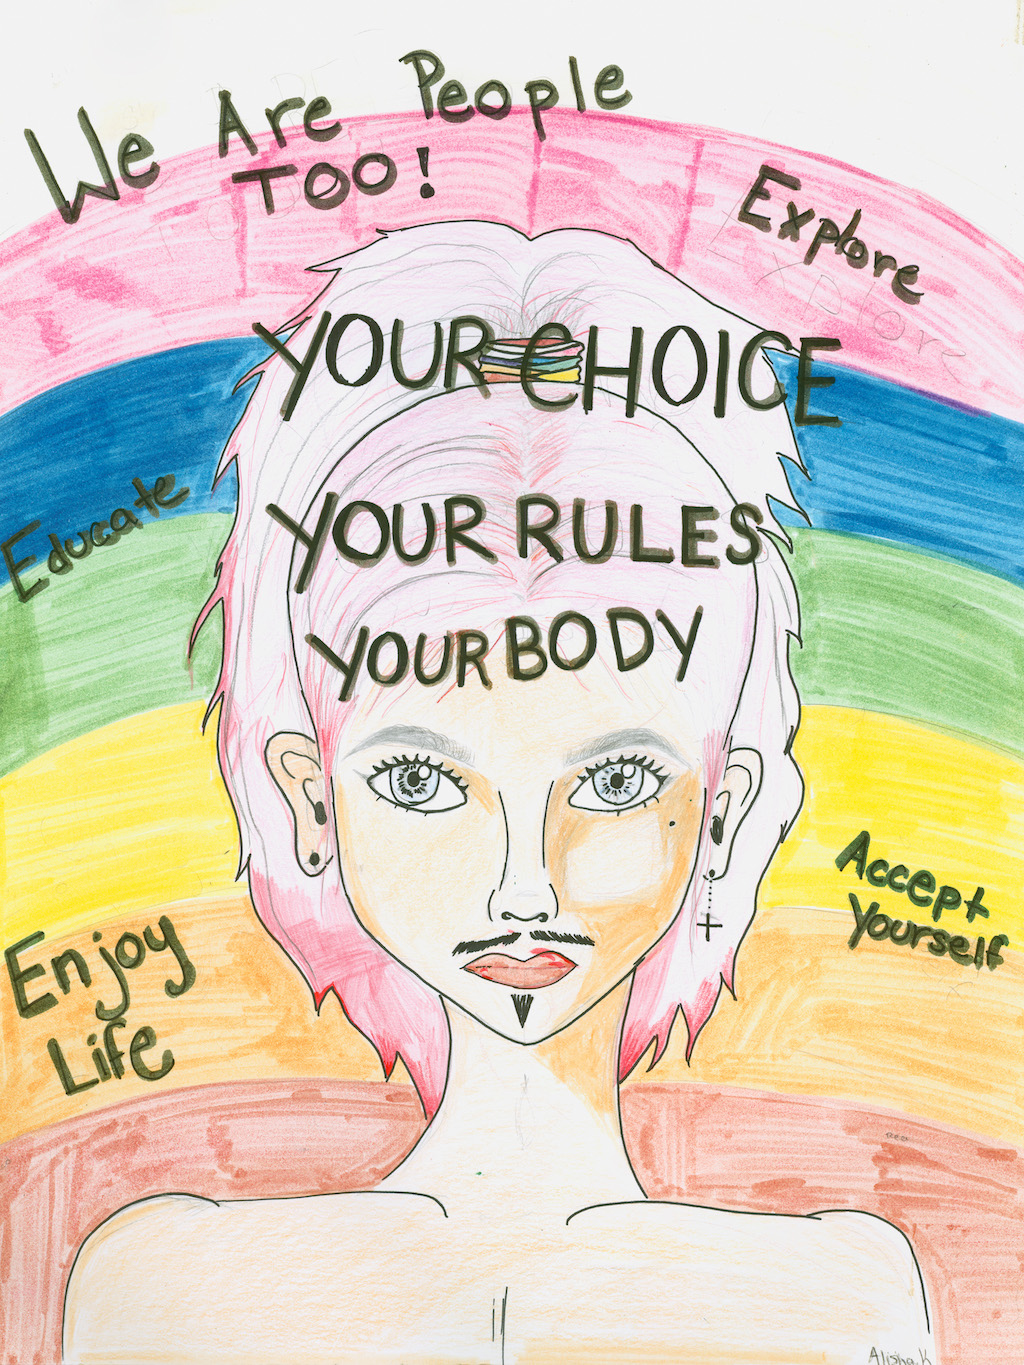 We Are People
TOO!
Explore
YOUR CHOICE
YOUR RULES
YOUR BODY
Educate
Accept
Yourself
Enjoy
Life
Alisha.K